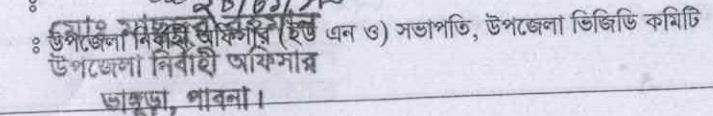 ঃ উপজেলা নির্বাহী অফিসার (ইউ এন ও) সভাপতি, উপজেলা ভিজিডি কমিটি
উপজেলা নির্বাহী অফিসার
পাবনা।